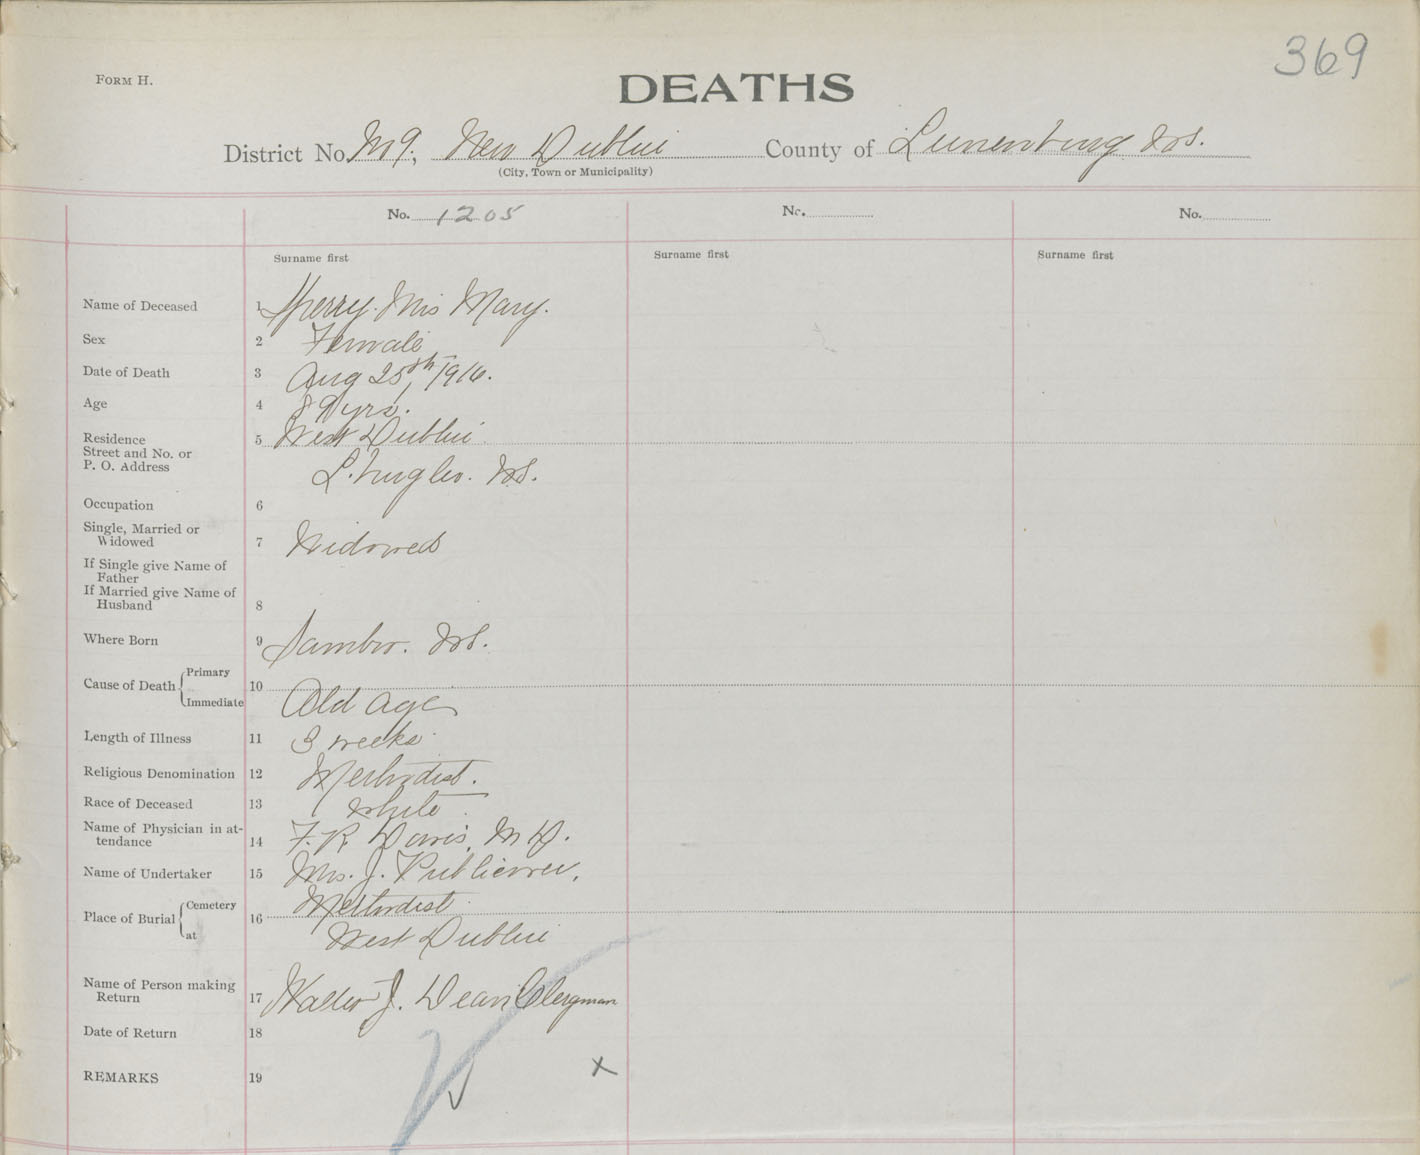 369
FORM H.
DEATHS
District No. No 9, New Dublin County of Lunenburg N.S.
(City, Town or Municipality)
No. 1205 No. No.
Surname first Surname first Surname first
Name of Deceased 1 Sperry. Mrs Mary.
Sex 2 Female
Date of Death 3 Aug 25th, 1916.
Age 4 89 yrs.
Residence 5 West Dublin
Street and No. or
P. O. Address L. Co. N.S.
Occupation 6
Single, Married or
Widowed 7 Widowed
If Single give Name of
Father
If Married give Name of
Husband 8
Where Born 9 Sambro. N.S.
Primary
Cause of Death 10
Immediate Old age
Length of Illness 11 3 weeks
Religious Denomination 12 Methodist.
Race of Deceased 13 White
Name of Physician in at-
tendance 14 F. R. Davis, M D.
Name of Undertaker 15 Mrs. J. Publicover.
Cemetery Methodist
Place of Burial 16
at West Dublin
Name of Person making
Return 17 Walter J. Dean Clergman
Date of Return 18
REMARKS 19 x